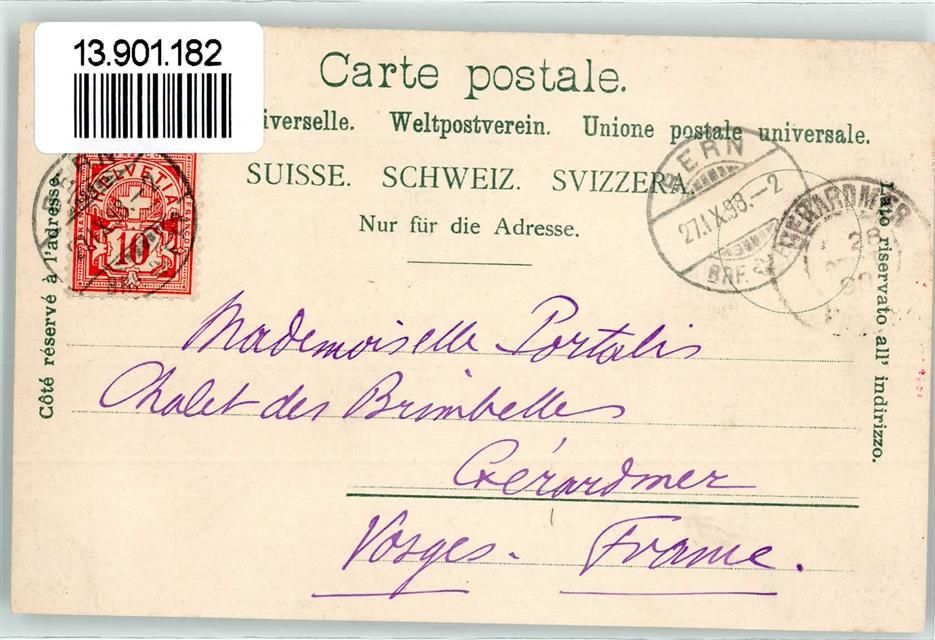 13.901.182
Carte postale.
iverselle. Weltpostverein. Unione postale universale.
SUISSE. SCHWEIZ. SVIZZERA.
Nur für die Adresse.
Côté réservé à l'adresse.
HELVETIA
FRANCO
10
BERN
27.IX.98.-2
BRF.
GERARDMER
28
Lato riservato all' indirizzo.
Mademoiselle Portalis
Chalet des Brimbelles
Gérardmer
Vosges. France.